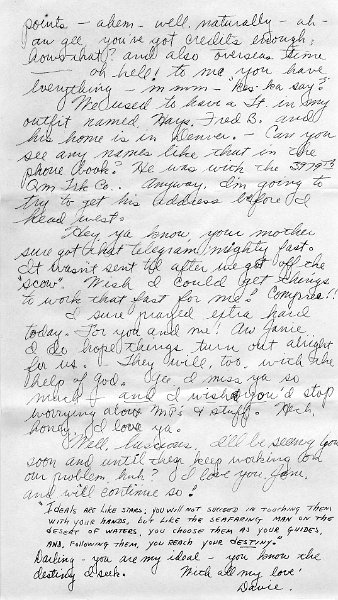 points - ahem - well, naturally - ah -
aw gee you've got credits enough,
hows that? and also overseas time
- oh hell! to me you have
everything - m m m - Kes-ka say?
We used to have a Lt. in my
outfit named Hays, Fred B. and
his home is in Denver. - Can you
see any names like that in the
phone book? He was with the
Qm Trk Co. Anyway, I'm going to
try to get his address before I
head west.
Hey ya know, your mother
sure got that telegram mighty fast.
It wasn't sent til after we got off the
"scow". Wish I could get things
to work that fast for me!
I sure prayed extra hard
today. For you and me! Aw Janie,
I do hope things turn out alright
for us. They will, too, with the
help of God. Gee, I miss ya so
much - and I wish you'd stop
worrying about MP's & stuff. Heck,
honey, I love ya.
Well, luscious, I'll be seeing you
soon and until then keep working on
our problem, huh? I love you, Jane,
and will continue so!
"Ideals are like stars; you will not succeed in touching them
with your hands, but like the seafaring man on the
desert of waters, you choose them as your guides,
and, following them, you reach your destiny."
Darling - you are my ideal - you know the
destiny I seek. With all my love